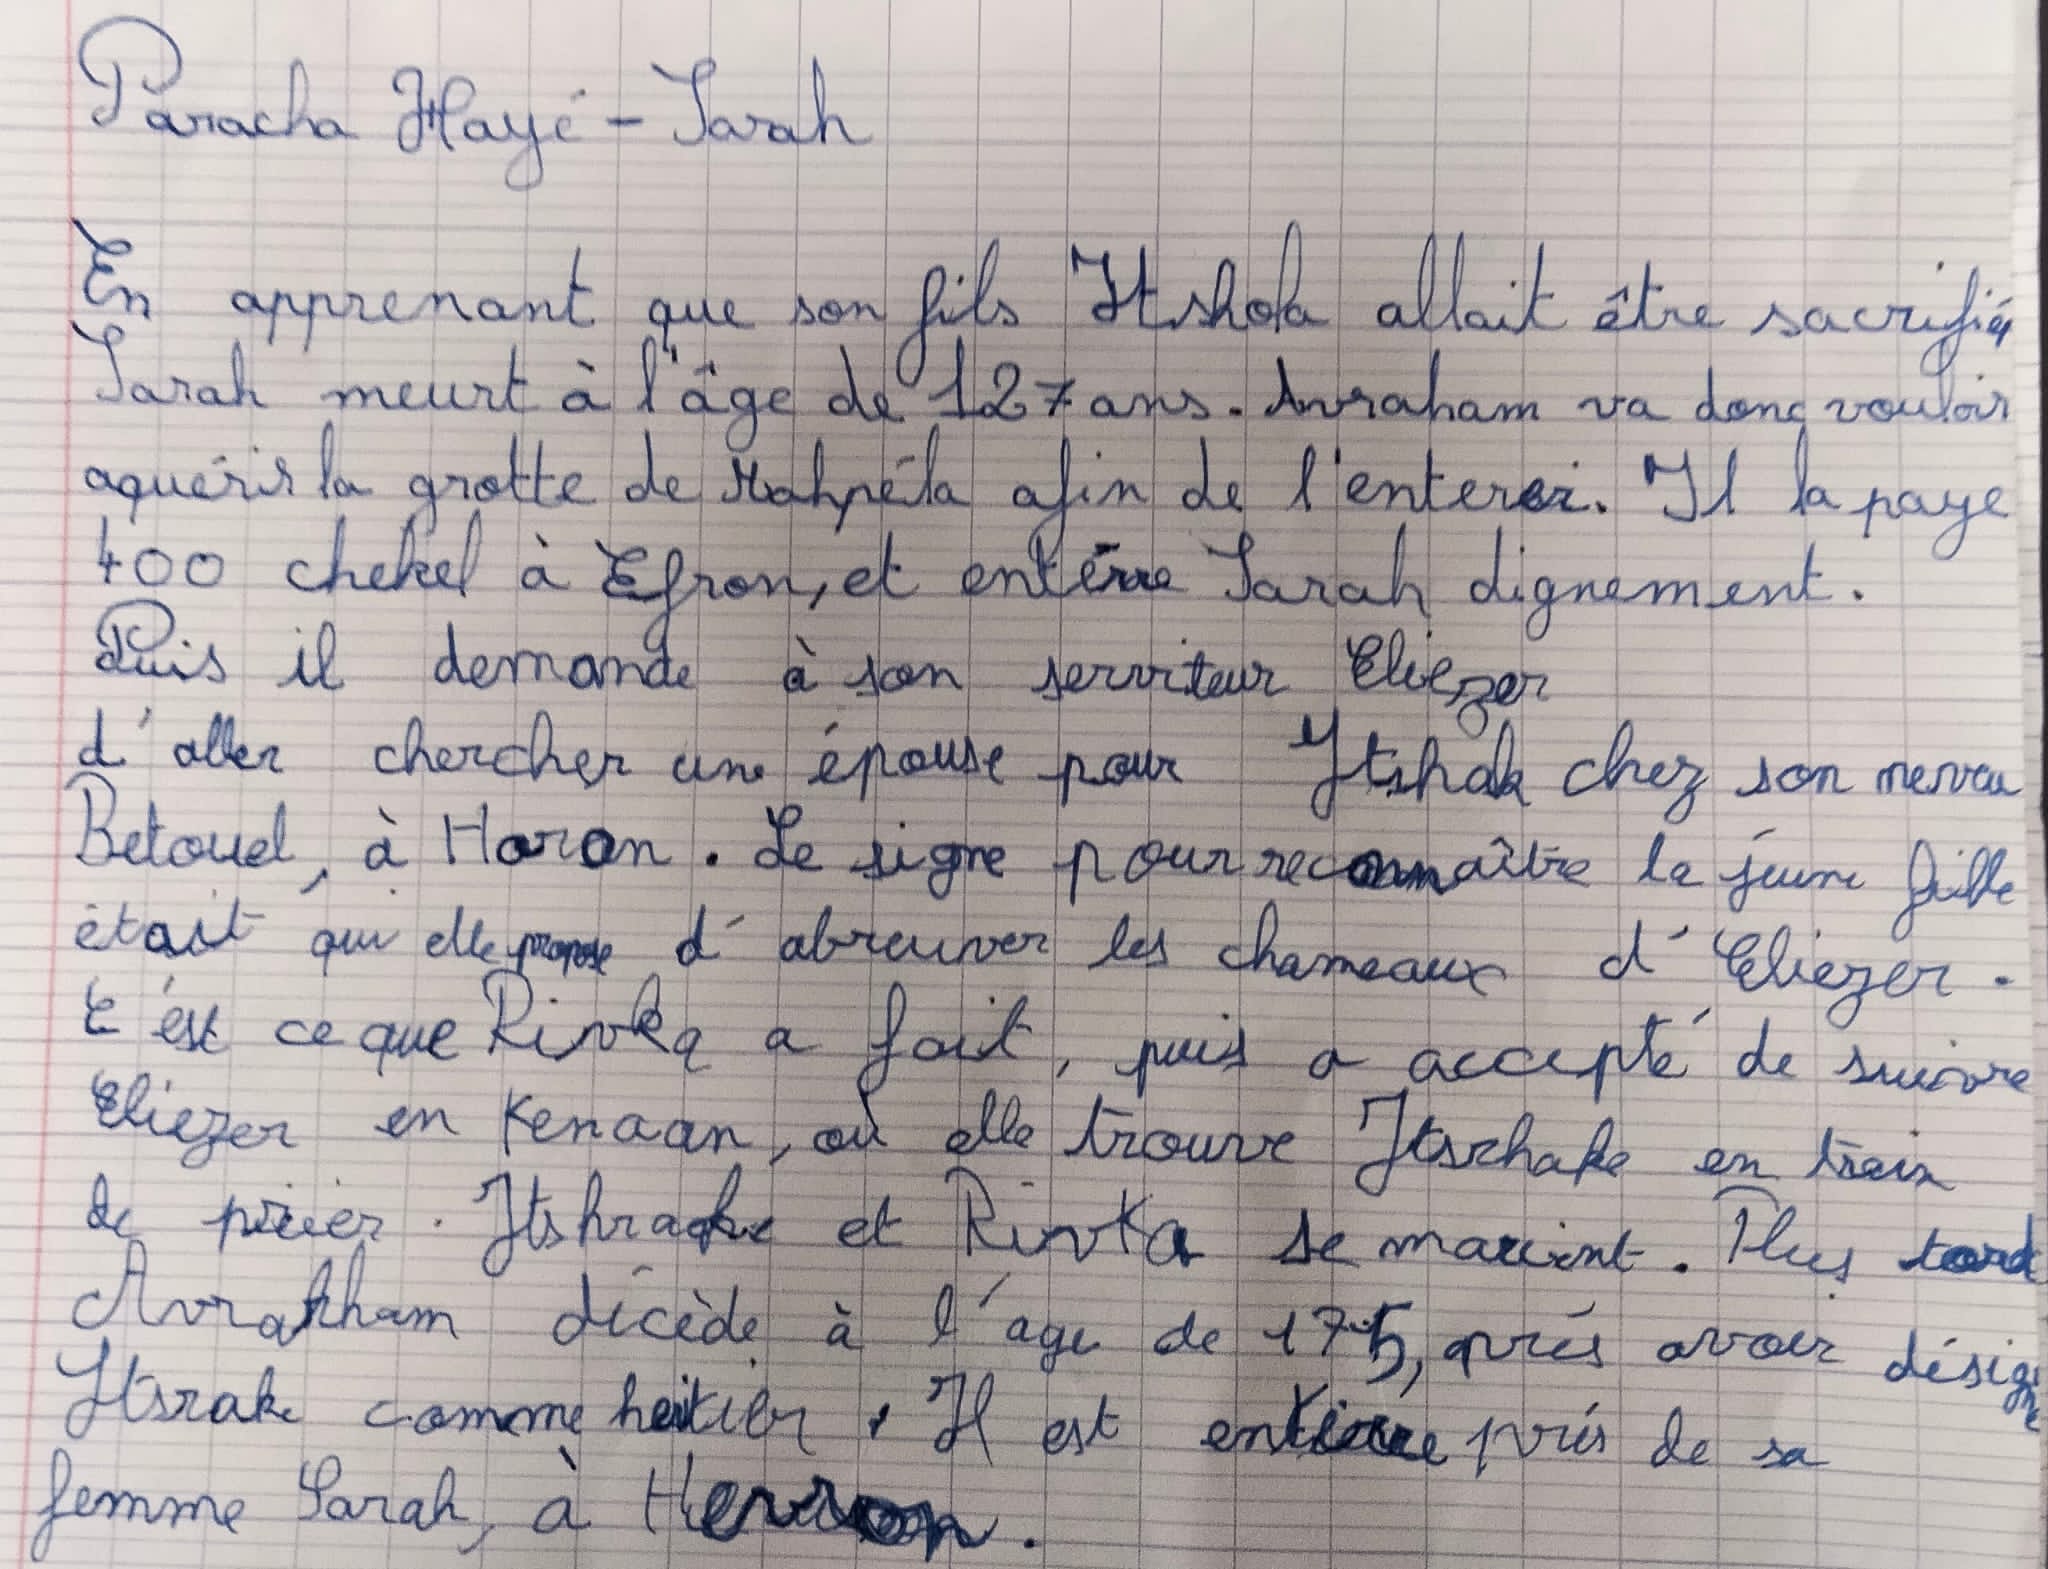 Paracha Hayé - Sarah
En apprenant que son fils Itshak allait être sacrifié,
Sarah meurt à l'âge de 127 ans. Avraham va donc vouloir
aquérir la grotte de Mahpéla afin de l'enterer. Il la paye
400 chekel à Efron, et entérre Sarah dignement.
Puis il demande à son serviteur Eliezer
d'aller chercher une épouse pour Itshak chez son neveu
Betouel, à Haran. Le signe pour reconnaître la jeune fille
était qui elle propose d'abreuver les chameaux d'Eliezer.
C'est ce que Rivka a fait, puis a accepté de suivre
Eliezer en Kenaan, où elle trouve Itsrhake en train
de prier. Itshrake et Rivka se marient. Plus tard
Avraham décède à l'age de 175, aprés avoir désigné
Itsrake comme heritier. Il est enterré prés de sa
femme Sarah, à Hevron.